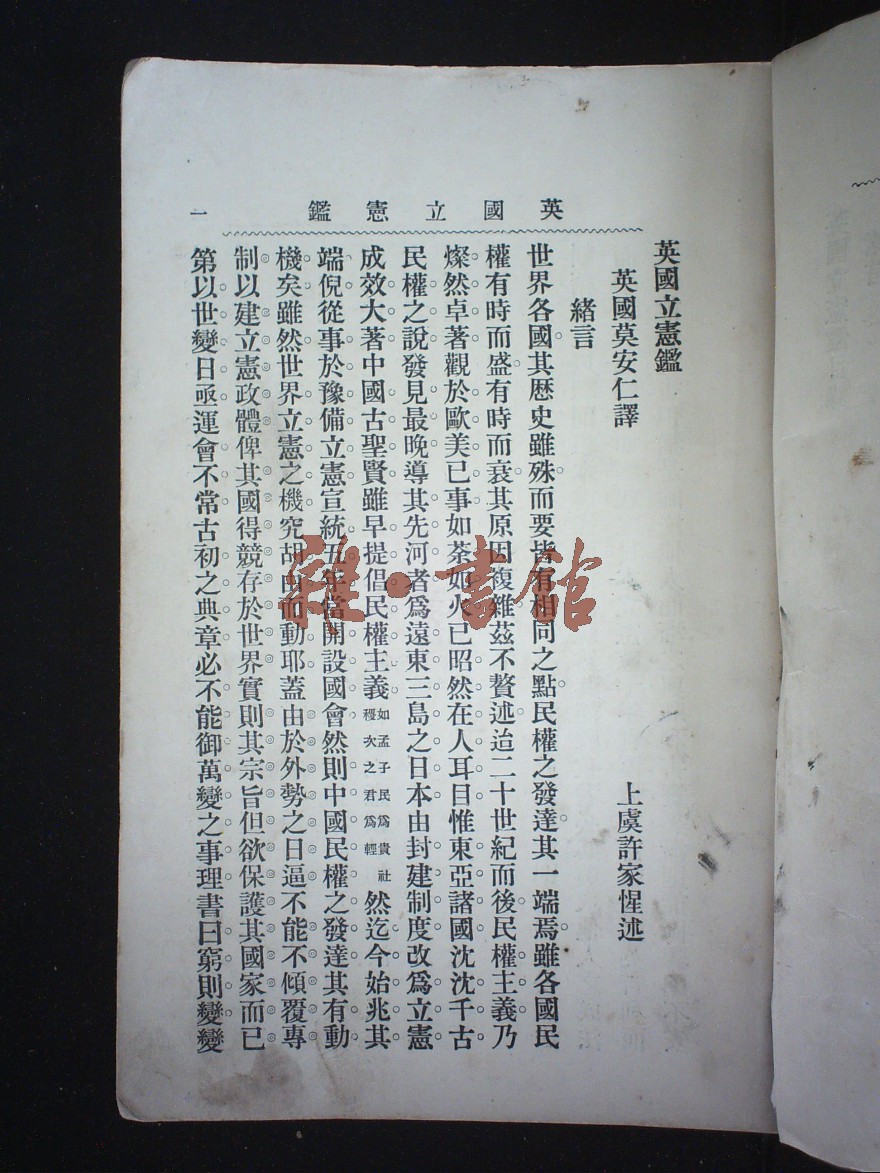 英國立憲鑑
一
英國立憲鑑
英國莫安仁譯
上虞許家惺述
緒言
世界各國其歷史雖殊而要皆有相同之點民權之發達其一端焉雖各國民
權有時而盛有時而衰其原因複雜茲不贅述迨二十世紀而後民權主義乃
燦然卓著觀於歐美已事如荼如火已昭然在人耳目惟東亞諸國沈沈千古
民權之說發見最晚導其先河者爲遠東三島之日本由封建制度改爲立憲
成效大著中國古聖賢雖早提倡民權主義如孟子民爲貴社稷次之君爲輕然迄今始兆其
端倪從事於豫備立憲宣統五年當開設國會然則中國民權之發達其有動
機矣雖然世界立憲之機究胡由而動耶蓋由於外勢之日逼不能不傾覆專
制以建立憲政體俾其國得競存於世界實則其宗旨但欲保護其國家而已
第以世變日亟運會不常古初之典章必不能御萬變之事理書曰窮則變變
雜·書館